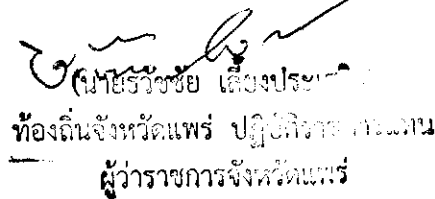 (นายธวัชชัย
ท้องถิ่นจังหวัดแพร่ ปฏิบัติราชการแทน
ผู้ว่าราชการจังหวัดแพร่